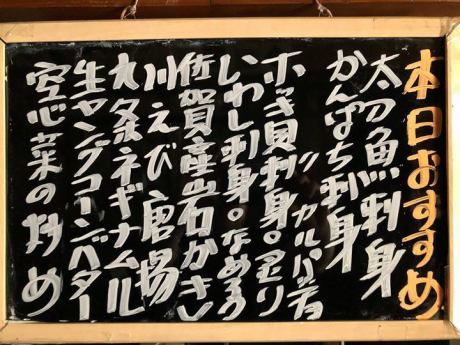 本日おすすめ
太刀魚刺身
かんぱち刺身
〃 カルパッチョ
ホッキ貝刺身。炙り
いわし刺身。なめろう
佐賀産岩石かき
川えび唐揚
九条ネギナムル
生ヤングコーンバター
空心菜の炒め